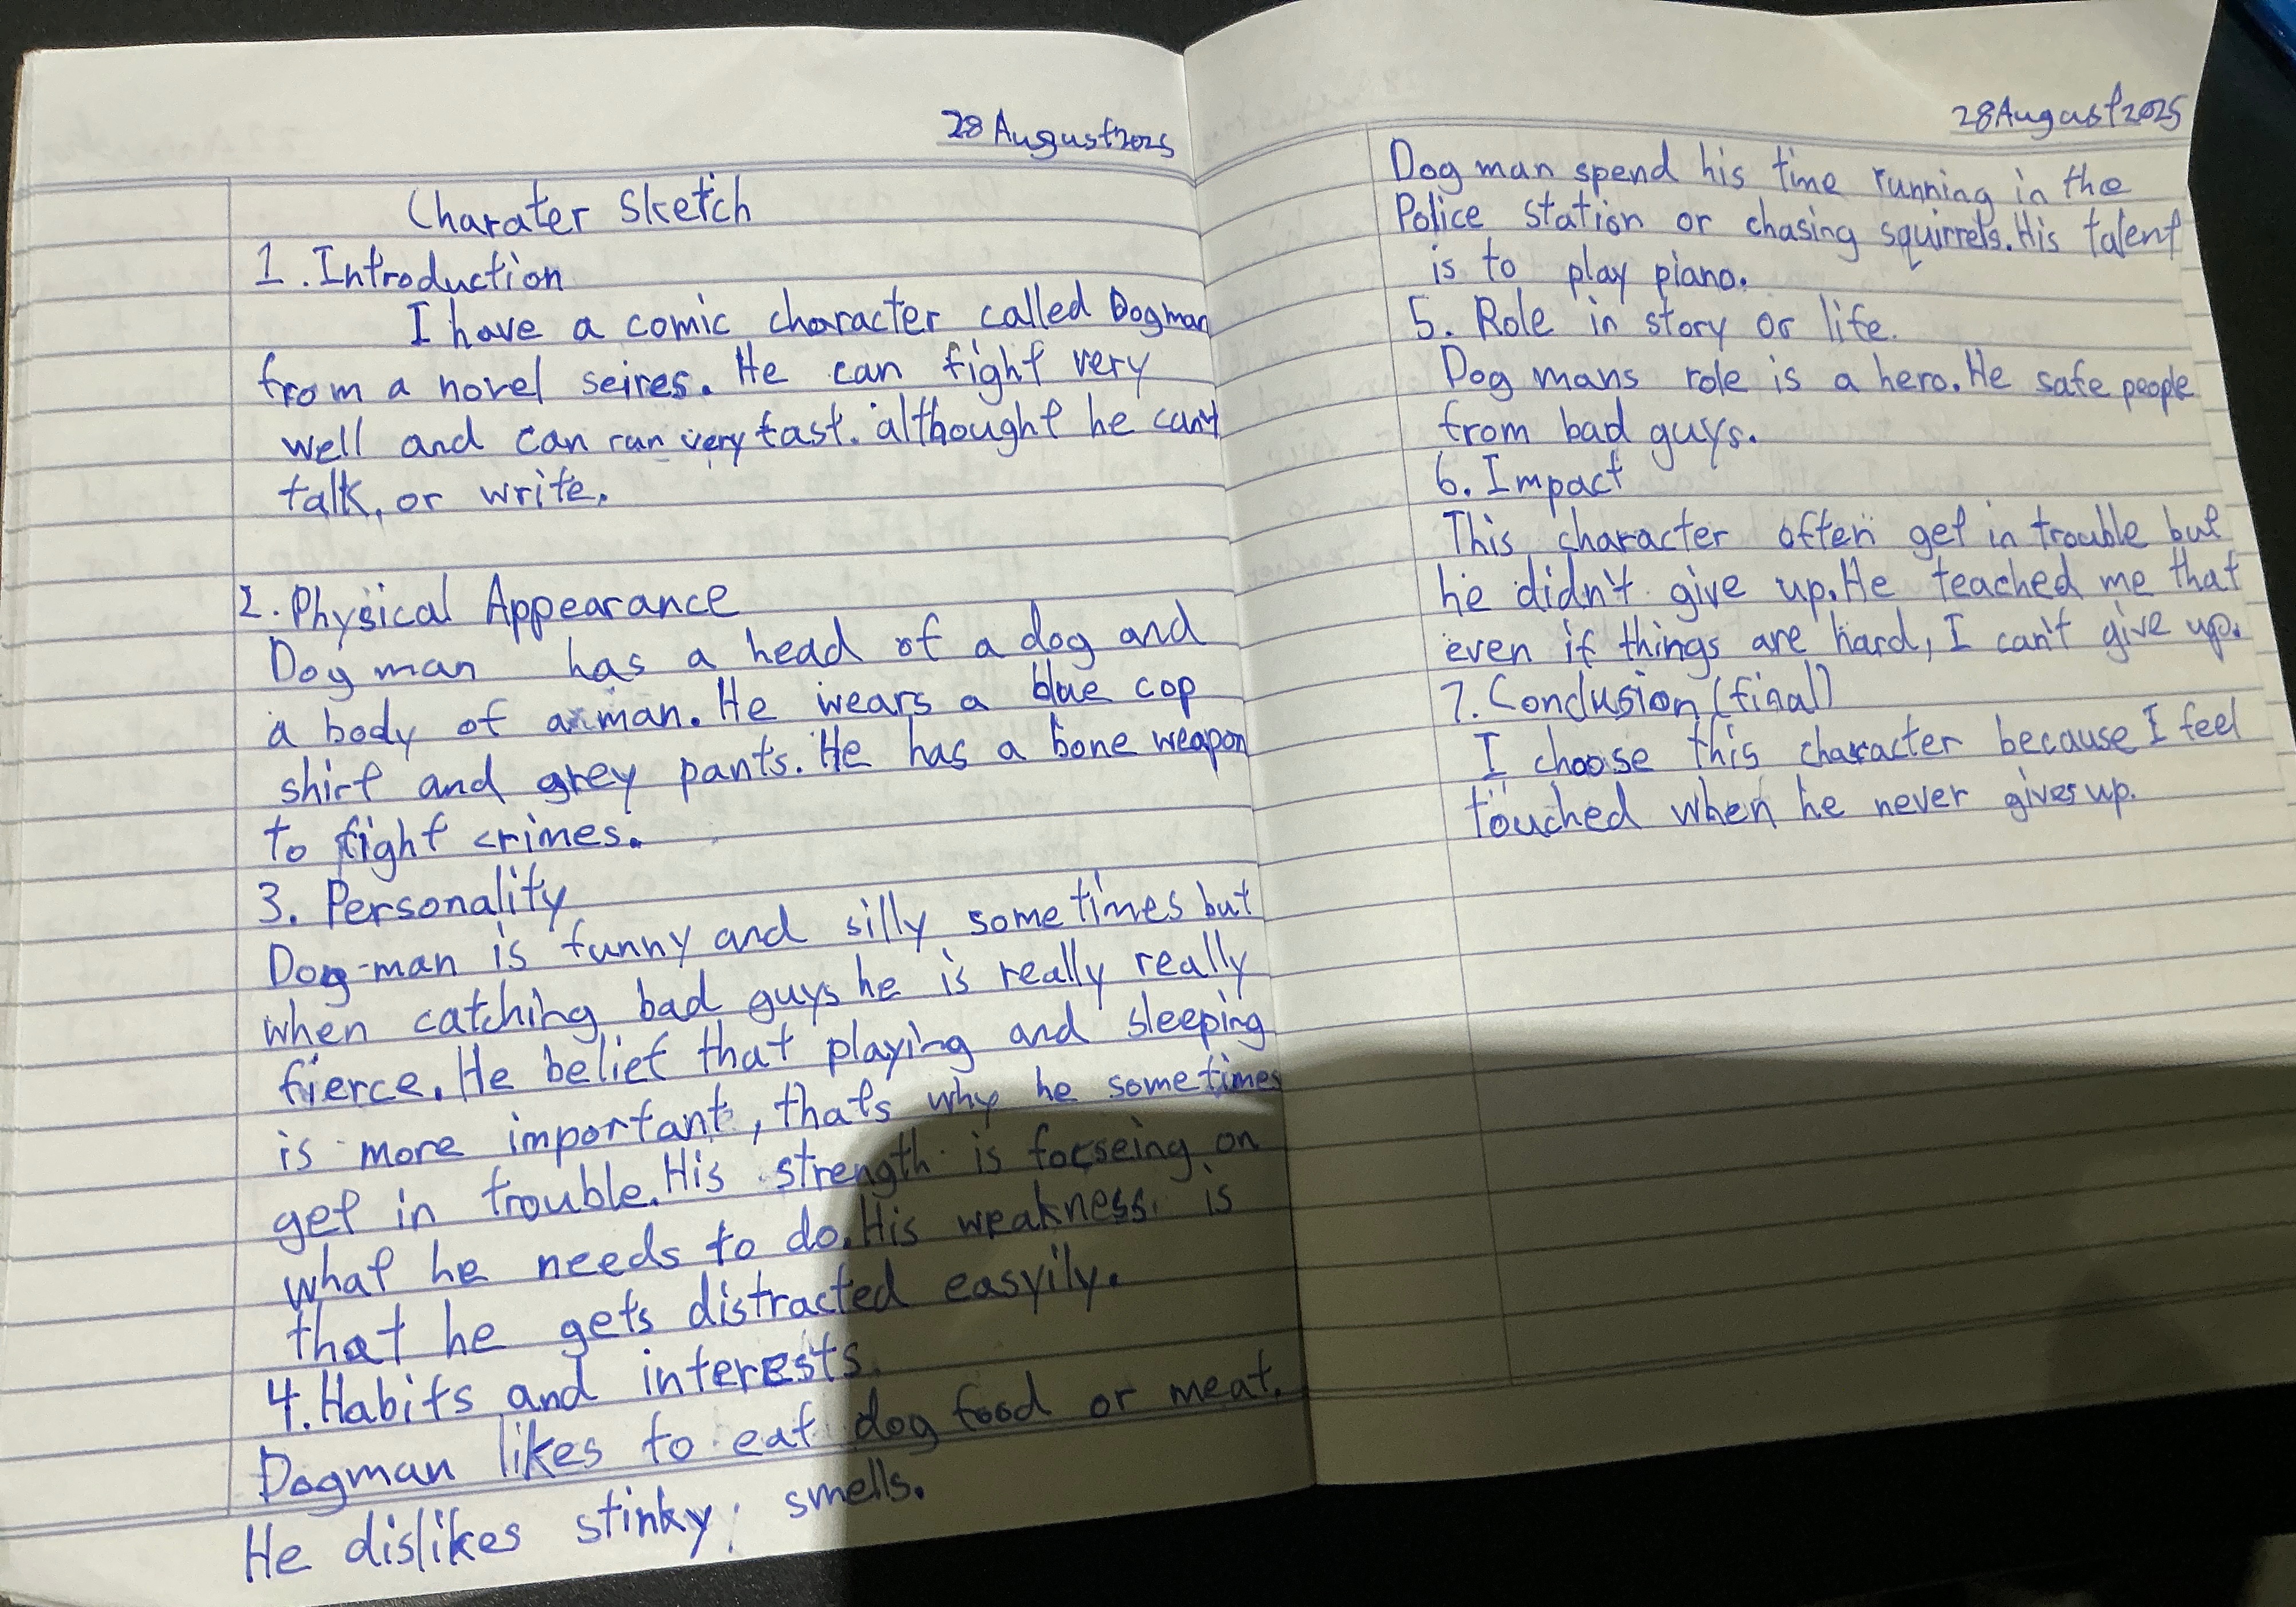 28 August 2025
Charater Sketch
1. Introduction
I have a comic character called Dogman
from a novel seires. He can fight very
well and can run very fast. althought he can't
talk, or write.
2. Physical Appearance
Dog man has a head of a dog and
a body of a man. He wears a blue cop
shirt and grey pants. He has a bone weapon
to fight crimes.
3. Personality
Dog-man is funny and silly sometimes but
when catching bad guys he is really really
fierce. He belief that playing and sleeping
is more important, thats why he sometimes
get in trouble. His strength is focseing on
what he needs to do. His weakness is
that he gets distracted easyily.
4. Habits and interests.
Dogman likes to eat dog food or meat.
He dislikes stinky smells.
28 August 2025
Dog man spend his time running in the
Police station or chasing squirrels. His talent
is to play piano.
5. Role in story or life.
Dog mans role is a hero. He safe people
from bad guys.
6. Impact
This character often get in trouble but
he didn't give up. He teached me that
even if things are hard, I can't give up.
7. Conclusion (final)
I choose this character because I feel
touched when he never gives up.